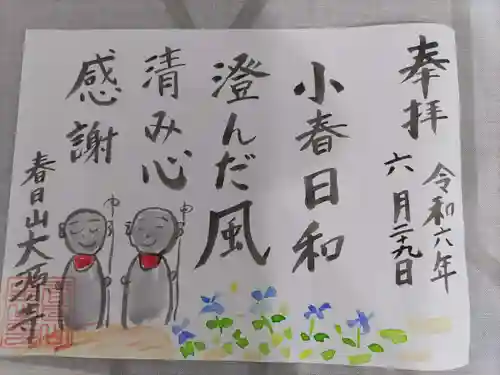 奉拝
令和六年
六月二十九日
小春日和
澄んだ風
清み心
感謝
春日山大源寺